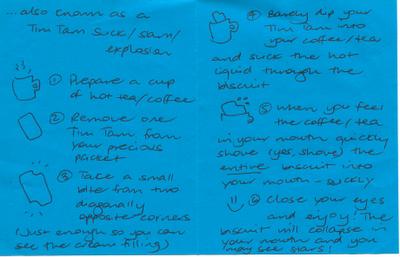 ...also known as a
Tim Tam Suck/slam/
explosion
① Prepare a cup
of hot tea/coffee
② Remove one
Tim Tam from
your precious
packet
③ Take a small
bite from two
diagonally
opposite corners
(Just enough so you can
see the cream filling)
④ Barely dip your
Tim Tam into
your coffee/tea
and suck the hot
liquid through the
biscuit
⑤ When you feel
the coffee/tea
in your mouth quickly
shove (yes, shove) the
entire biscuit into
your mouth - quickly
⑥ Close your eyes
and enjoy! The
biscuit will collapse in
your mouth and you
may see stars!